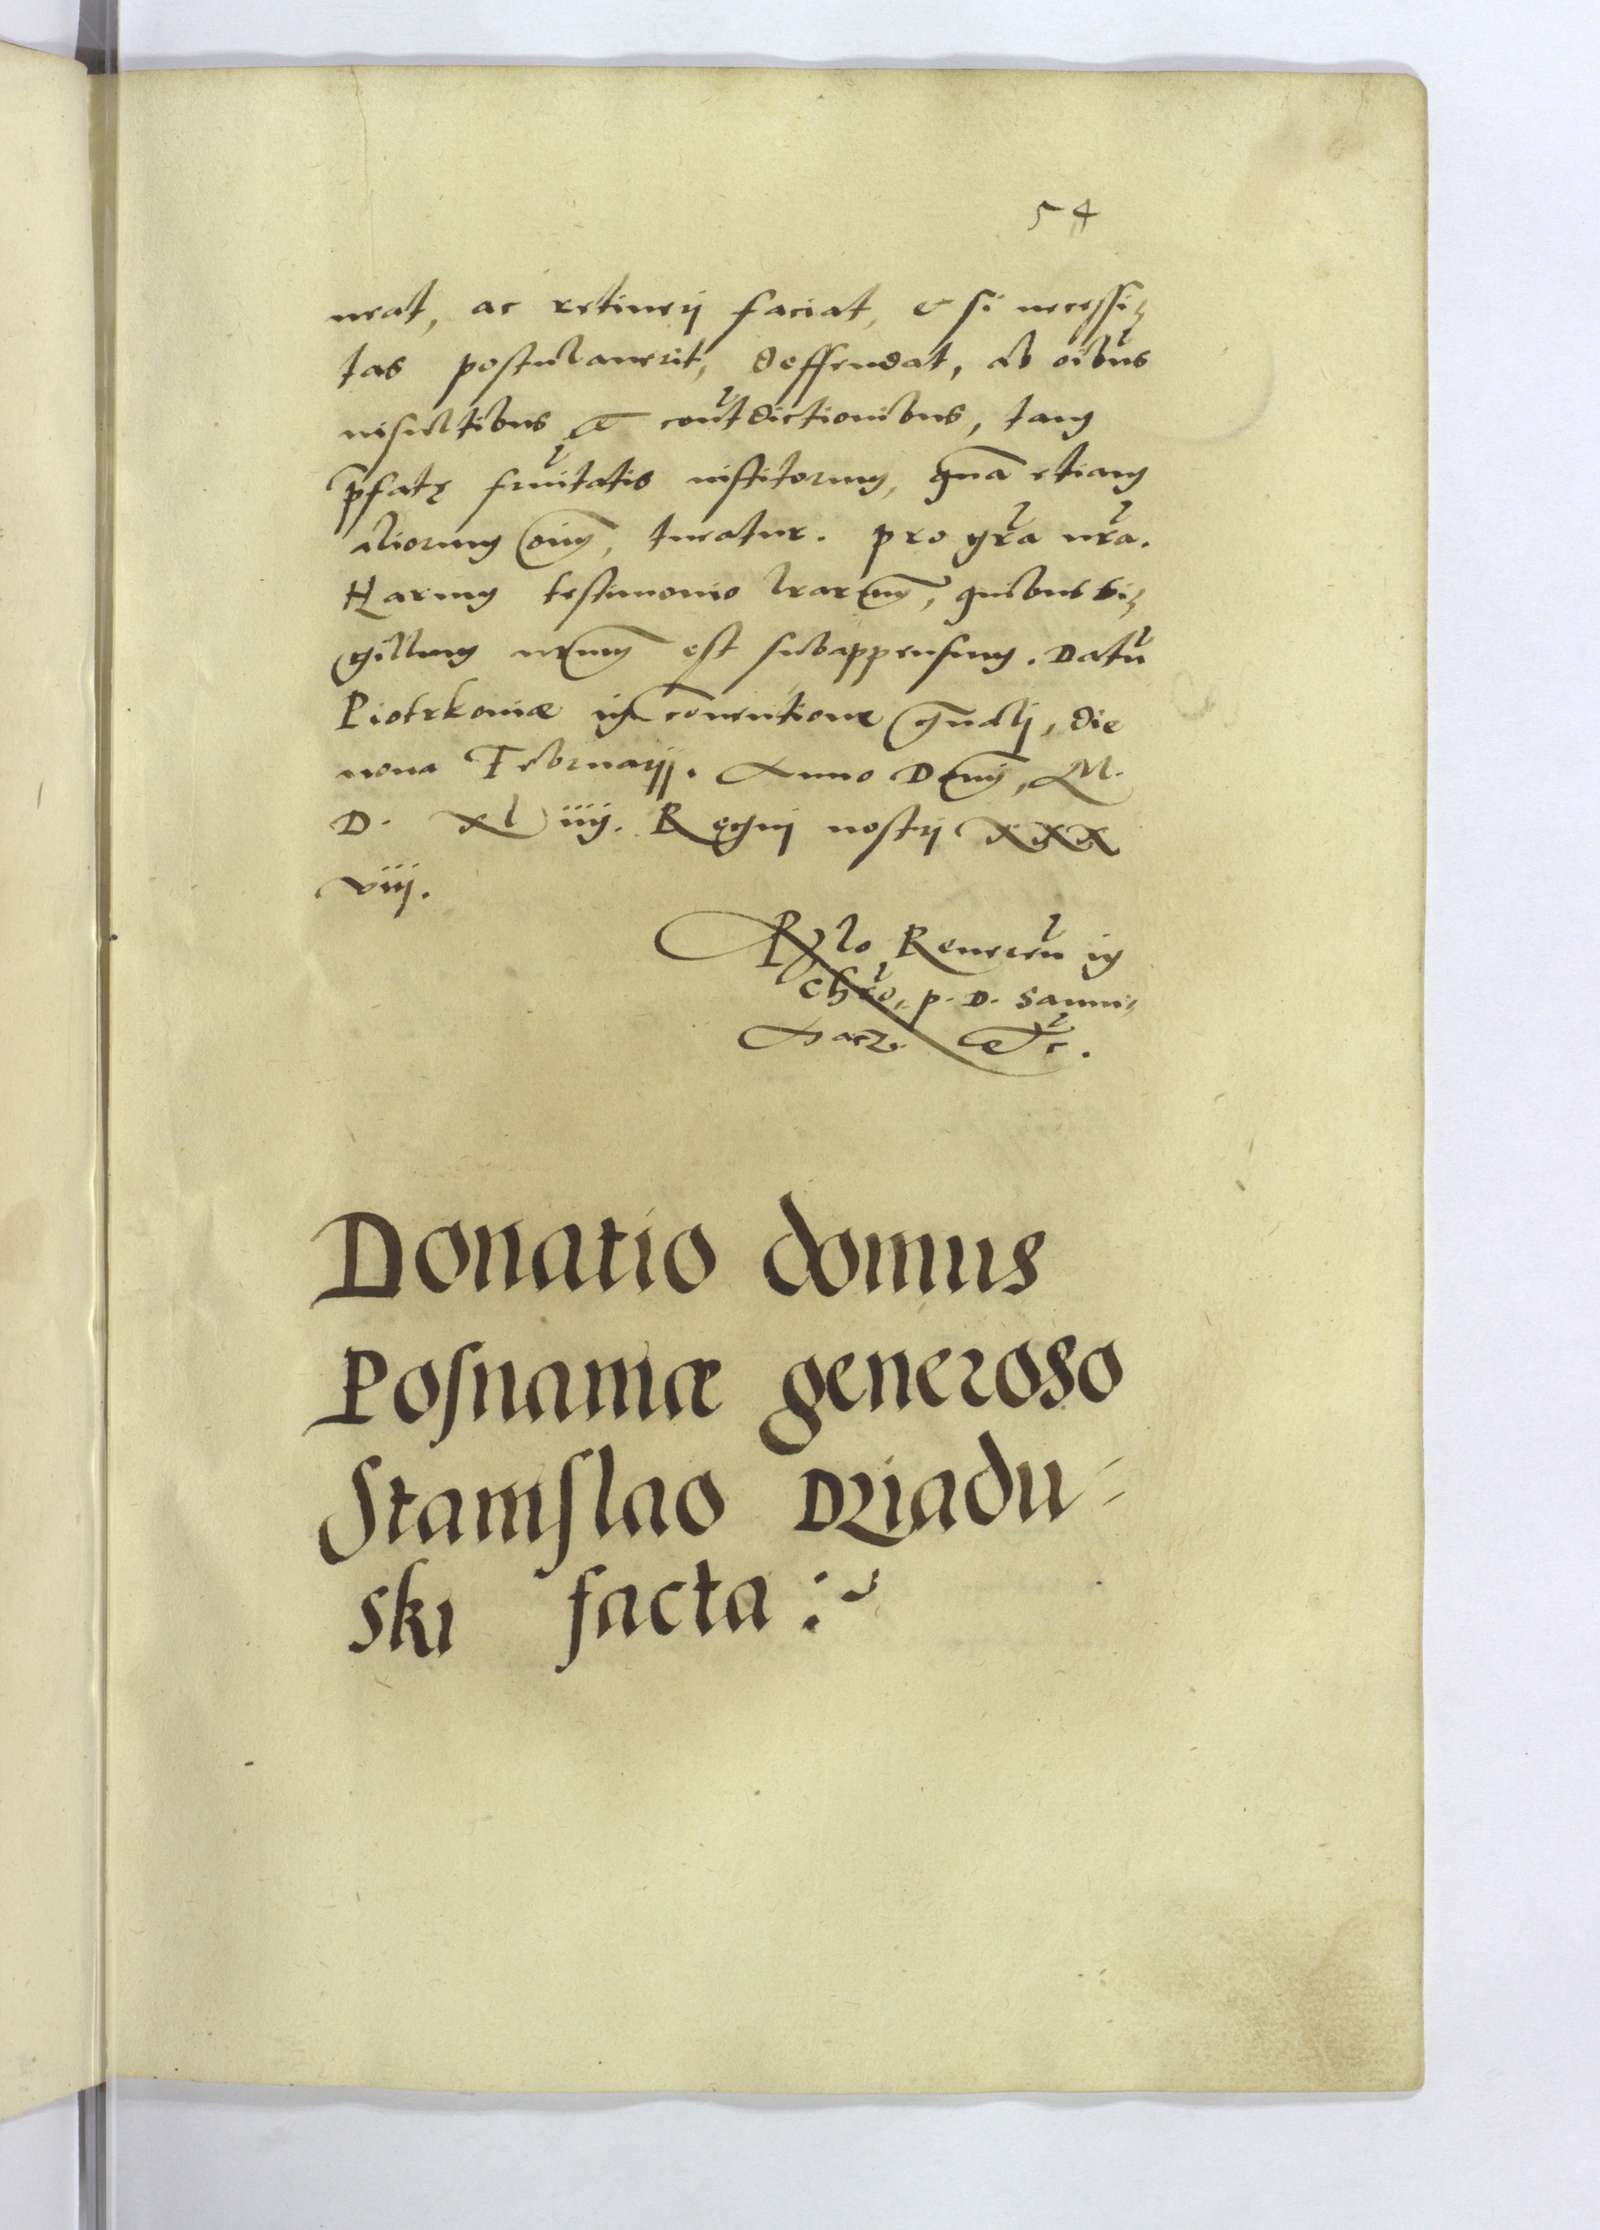 54
neat, ac retinerj faciat, & si necessi-
tas postulauerit, deffendat, ab oibus
insultibus et contdictionibus, tam
pfatę fruitatis institorum, qua etiam
aliorum oim, tueatur. pro gra nra.
Harum testimonio lrarum, quibus si-
gillum nrum est subappensum. Datu
Piotrkouiæ in conuentione gnalj, die
nona Februarij. Anno Dnj, M.
D. xl iiij. Regnj nostrj xxx
viij.
Rlo Reueren in
chro, p. D. Samui-
etc.
Donatio domus
Posnaniæ generoso
Stanislao Dziadu-
ski facta: